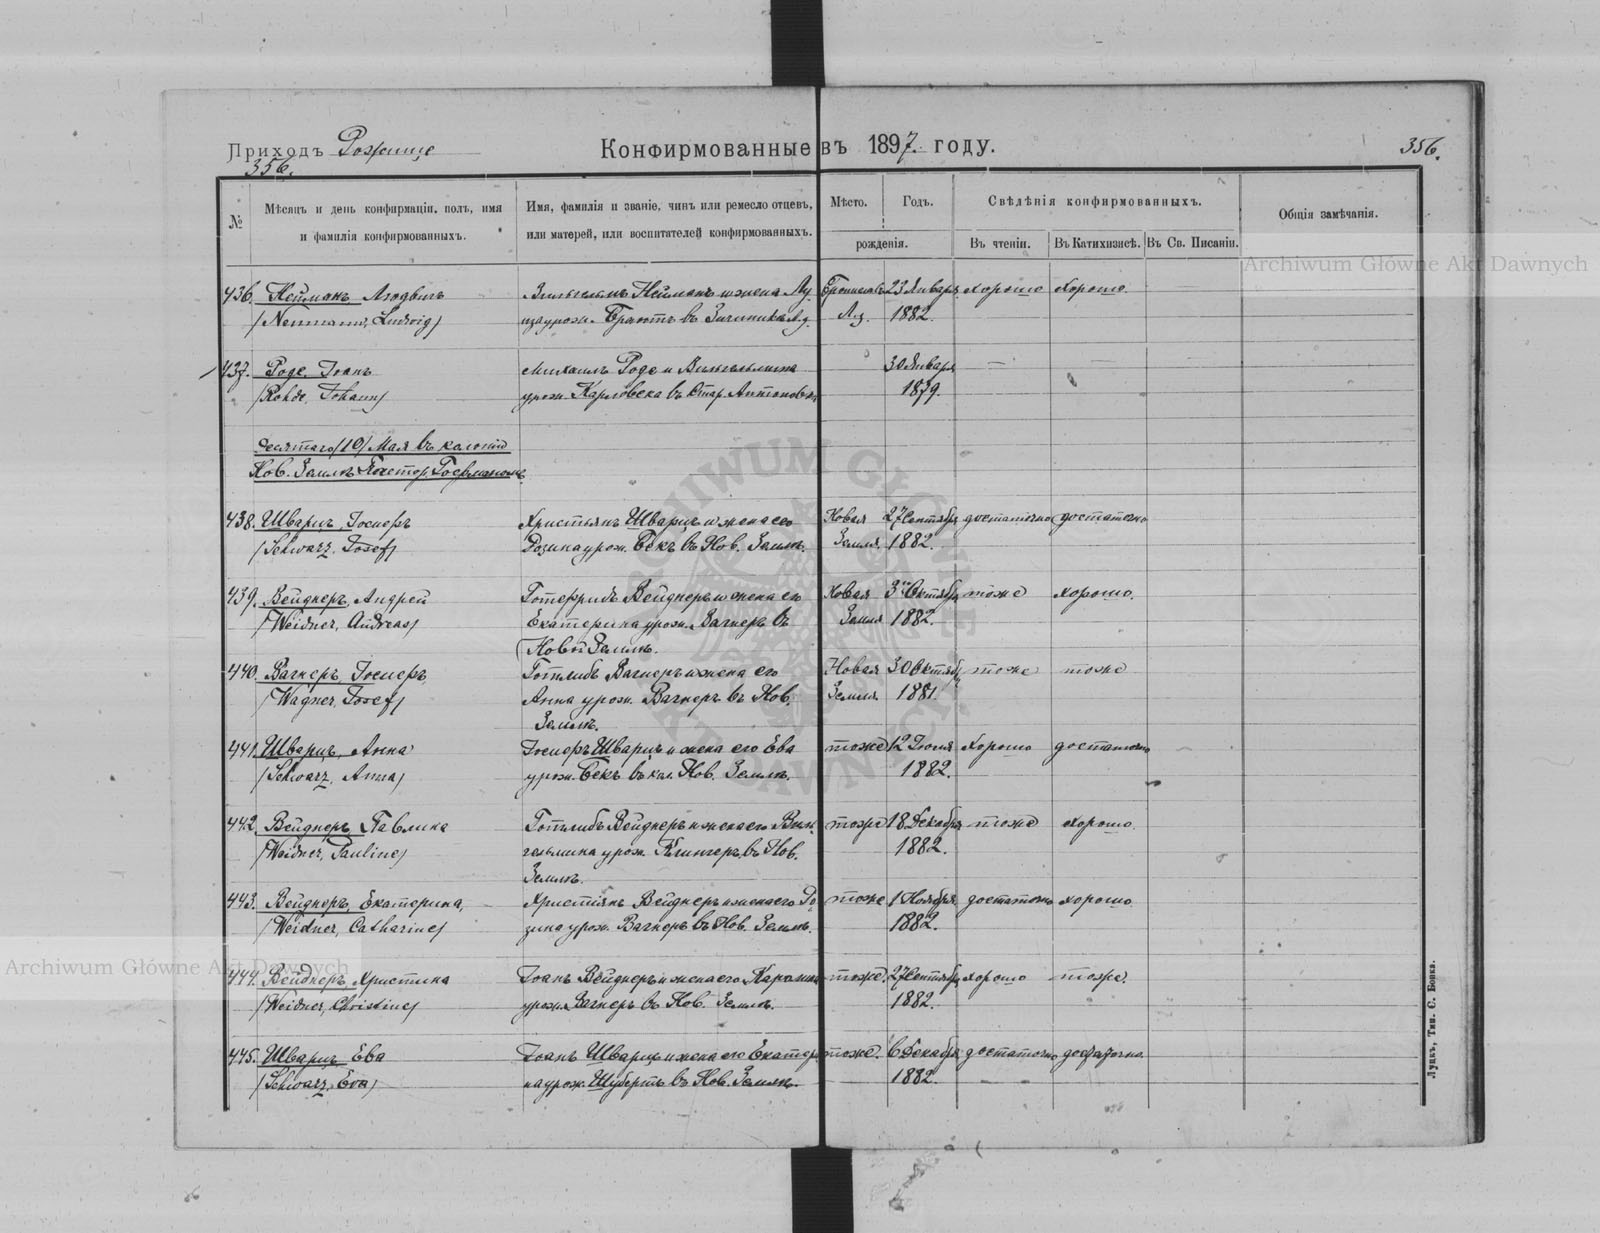 Приходъ Рожище
Конфирмованные въ 1897. году.
356.
356.
№
Мѣсяцъ и день конфирмаціи, полъ, имя
и фамилія конфирмованныхъ.
Имя, фамилія и званіе, чинъ или ремесло отцевъ,
или матерей, или воспитателей конфирмованныхъ.
Мѣсто.
Годъ.
рожденія.
Свѣдѣнія конфирмованныхъ.
Въ чтеніи.
Въ Катихизисѣ.
Въ Св. Писаніи.
Общія замѣчанія.
Archiwum Główne Akt Dawnych
436. Нейманъ Людвигъ Вильгельмъ Нейманъ и жена Лу 23 Января хорошо хорошо.
/Neumann, Ludwig/ иза урож. Брантъ въ 1882.
437. Роде, Іоанъ Михаилъ Роде и Вильгельмина 30 Января — —
/Rohde, Johann/ урож. Карловска въ Стар. Антоновкѣ 1879.
Десятаго /10/ Мая въ колоніи
Нов. Землѣ Пастор. Гофманомъ.
438. Шварцъ Іосифъ Христьянъ Шварцъ и жена его Новая 27 Сентября достаточно достаточно
/Schwarz, Josef/ Розина урож. Бекъ въ Нов. Землѣ. Земля 1882.
439. Вейднеръ, Андрей Готфридъ Вейднеръ и жена его Новая 3 Октября тоже хорошо.
/Weidner, Andreas/ Екатерина урож. Вагнеръ въ Земля 1882.
Новой Землѣ.
440. Вагнеръ, Іосифъ, Готлибъ Вагнеръ и жена его Новая 30 Октяб. тоже тоже
/Wagner, Josef/ Анна урож. Вагнеръ въ Нов. Земля 1881.
Землѣ.
441. Шварцъ, Анна Іосифъ Шварцъ и жена его Ева тоже 12 Іюня хорошо достаточно
/Schwarz, Anna/ урож. Бекъ въ кол. Нов. Землѣ. 1882.
442. Вейднеръ, Павлина Готлибъ Вейднеръ и жена его Виль тоже 18 Декабря тоже хорошо.
/Weidner, Pauline/ гельмина урож. Клингеръ въ Нов. 1882.
Землѣ.
443. Вейднеръ, Екатерина, Христіянъ Вейднеръ и жена его Ро тоже 1 Ноября достаточно хорошо.
/Weidner, Catharine/ зина урож. Вагнеръ въ Нов. Землѣ. 1882.
Archiwum Główne Akt Dawnych
444. Вейднеръ, Христина Іоанъ Вейднеръ и жена его Каролина тоже. 27 Сентября хорошо тоже.
/Weidner, Christine/ урож. Вагнеръ въ Нов. Землѣ. 1882.
445. Шварцъ Ева Іоанъ Шварцъ и жена его Екатери тоже. 6 Декабря достаточно достаточно.
/Schwarz, Eva/ на урож. Шубертъ въ Нов. Землѣ. 1882.
Луцкъ, Тип. С. Бонка.
ARCHIWUM GŁÓWNE AKT DAWNYCH